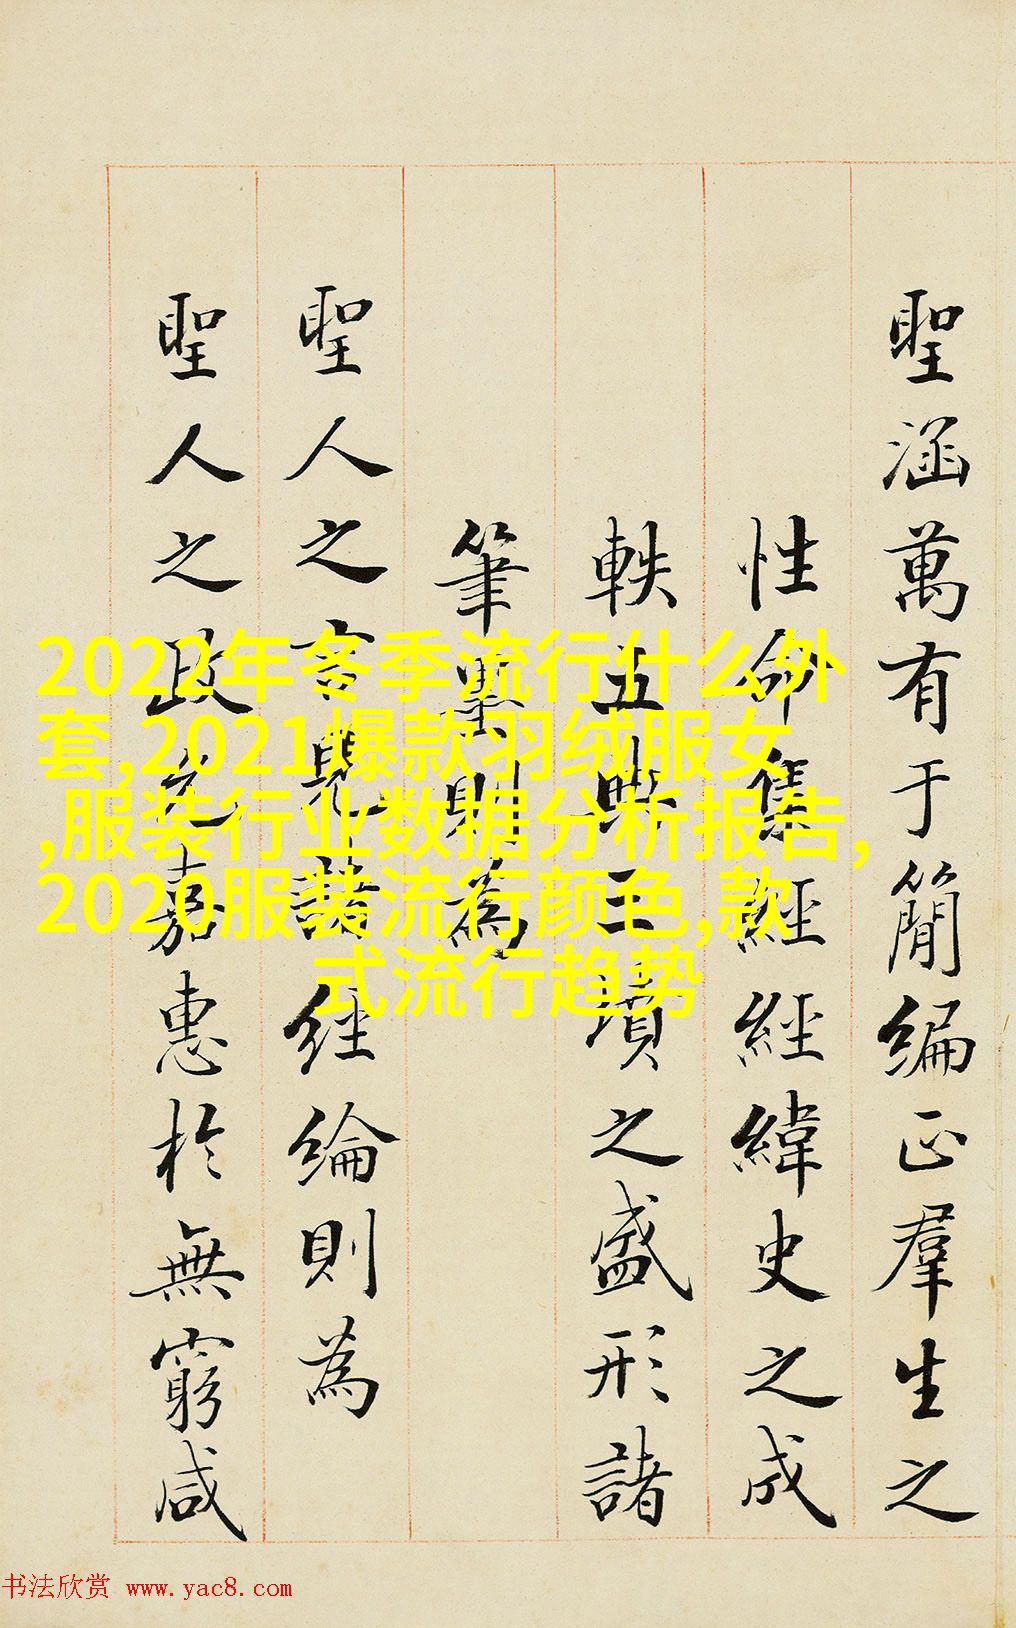 聖涵萬有于簡編正羣生之
性命集經經緯史之成
軼五典三墳之盛形諸
筆墨則為
聖人之言見諸經綸則為
聖人之政之嘉惠於無窮咸
2022年冬季流行什么外
套,2021爆款羽绒服女
,服装行业数据分析报告,
2020服装流行颜色,款
式流行趋势
书法欣赏 www.yac8.com